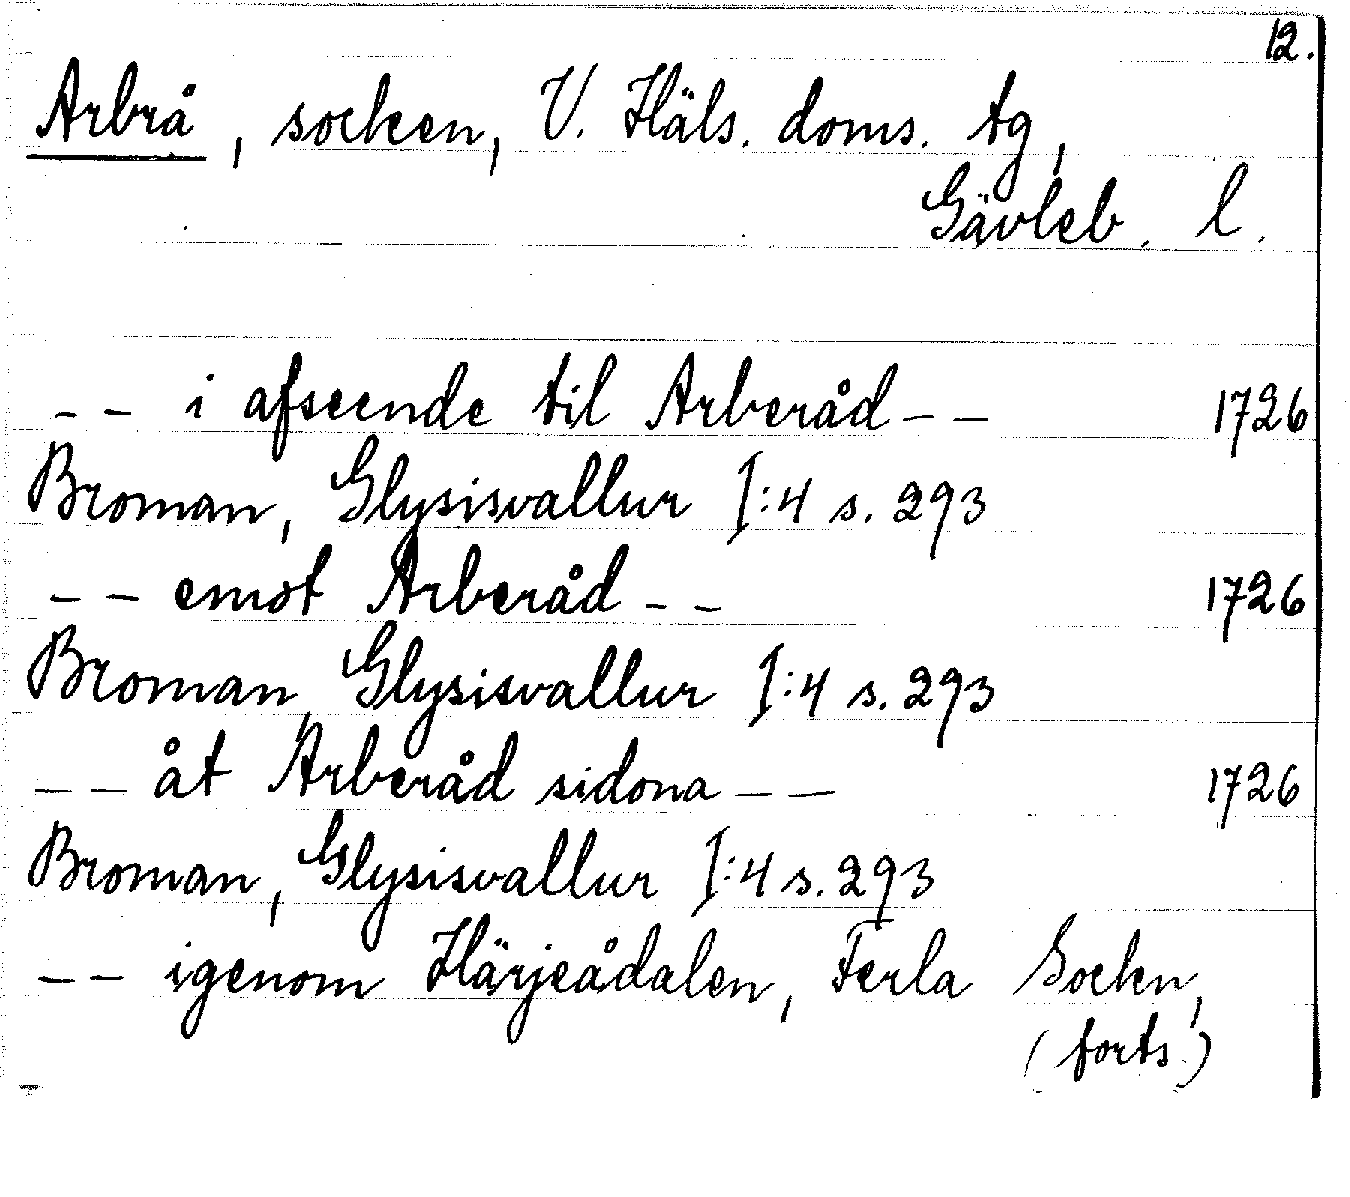 12.
Arbrå, socken, V. Häls. doms. tg,
Gävleb. l.
-- i afseende til Arberåd -- 1726
Broman, Glysisvallur I:4 s. 293
-- emot Arberåd -- 1726
Broman, Glysisvallur I:4 s. 293
-- åt Arberåd sidona -- 1726
Broman, Glysisvallur I:4 s. 293
-- igenom Härjeådalen, Ferla Sockn,
(forts.)